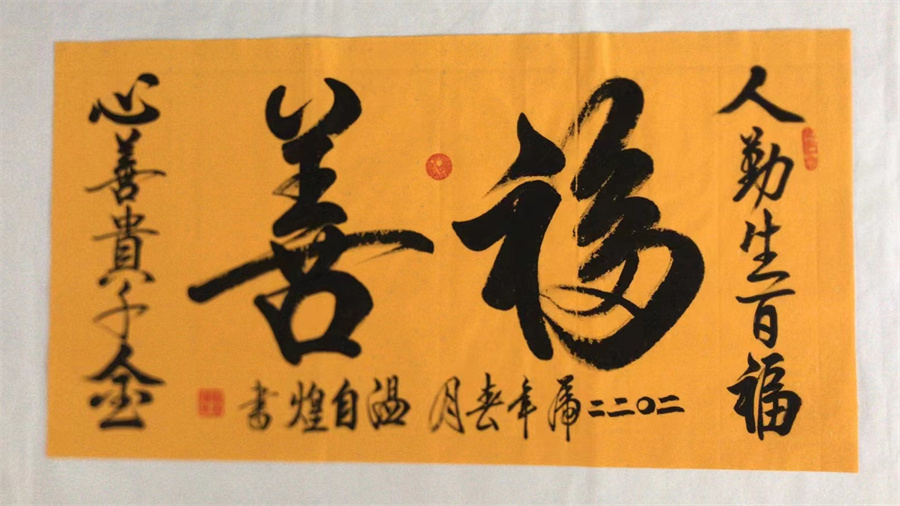 人勤生百福
福善
心善貴千金
二〇二二虎年春月 温自煌書